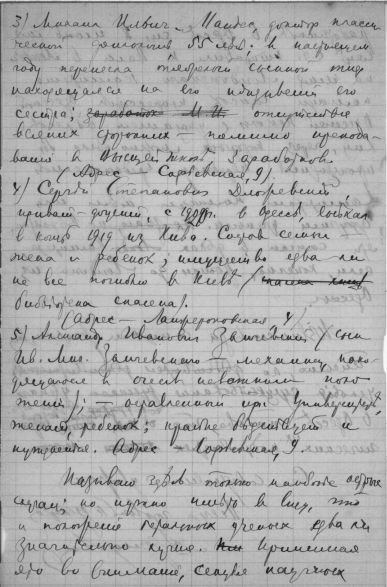 3) Михаил Ильич Мандес, доктор класси-
ческой филологии, 55 лет; в настоящем
году перенесла тяжелый сыпной тиф
находящаяся на его иждивении его
сестра; заработок М.И. отсутствие
всяких сторонних – помимо препода-
вания в Высшей школе заработков.
(Адрес – Софиевская, 9).
4) Сергей Степанович
приват-доцент, с 1920 г. в Одессе, выехал
в конце 1919 из Киева. Состав семьи
жена и ребенок; имущество едва ли
не все погибло в Киеве (
библиотека спасена).
(Адрес – Ланжероновская 4)
5) Александр Иванович Занчевский / сын
Ив. Мих. Занчевского – механика, нахо-
дящегося в очень неважном поло-
жении /; – оставленный при Университете,
женат, ребенок; крайне бедствует и
нуждается. Адрес – Софиевская, 9.
Называю здесь только наиболее острые
случаи; но нужно иметь в виду, что
и положение остальных ученых едва ли
значительно лучше. Принимая
это во внимание, секция научных